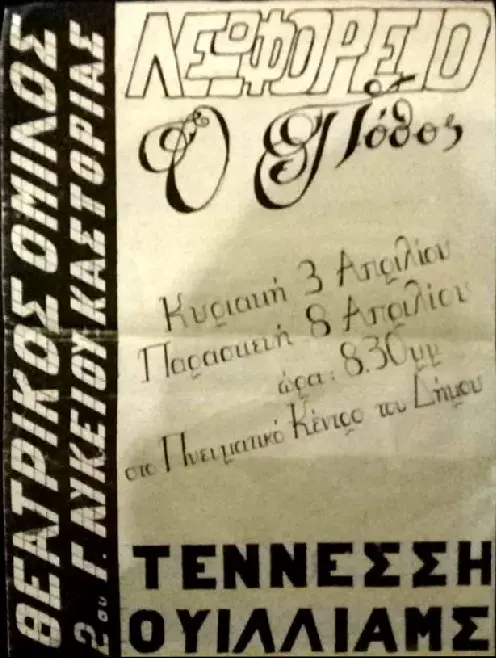 ΛΕΩΦΟΡΕΙΟ
Ο Πόθος
Κυριακή 3 Απριλίου
Παρασκευή 8 Απριλίου
ώρα: 8.30μμ
στο Πνευματικό Κέντρο του Δήμου
ΤΕΝΝΕΣΣΗ
ΟΥΙΛΛΙΑΜΣ
ΘΕΑΤΡΙΚΟΣ ΟΜΙΛΟΣ
2ου Γ. ΛΥΚΕΙΟΥ ΚΑΣΤΟΡΙΑΣ